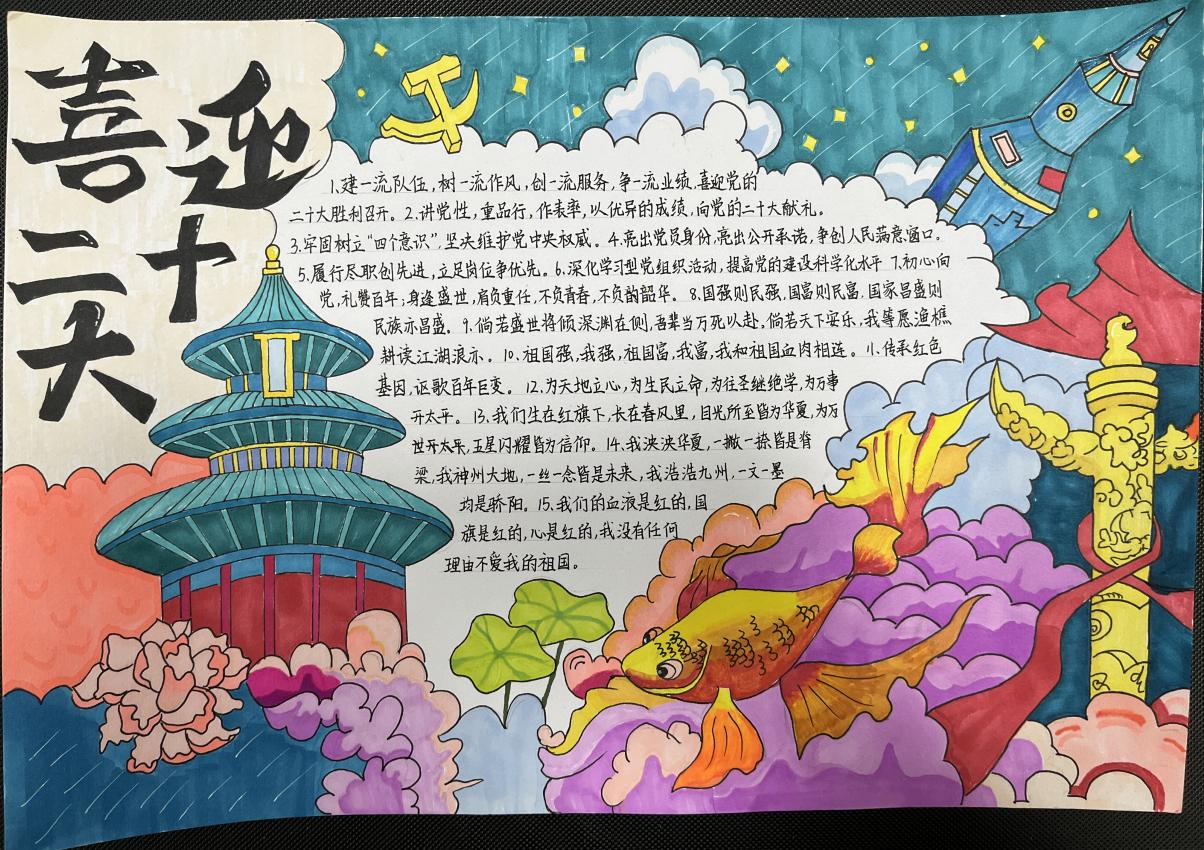 喜迎
二十
大
1.建一流队伍,树一流作风,创一流服务,争一流业绩,喜迎党的
二十大胜利召开。2.讲党性,重品行,作表率,以优异的成绩,向党的二十大献礼。
3.牢固树立“四个意识”,坚决维护党中央权威。4.亮出党员身份,亮出公开承诺,争创人民满意窗口。
5.履行尽职创先进,立足岗位争优先。6.深化学习型党组织活动,提高党的建设科学化水平 7.初心向
党,礼赞百年;身逢盛世,肩负重任,不负青春,不负韵韶华。8.国强则民强,国富则民富,国家昌盛则
民族亦昌盛。9.倘若盛世将倾深渊在侧,吾辈当万死以赴,倘若天下安乐,我等愿渔樵
耕读江湖浪亦。10.祖国强,我强,祖国富,我富,我和祖国血肉相连。11.传承红色
基因,讴歌百年巨变。12.为天地立心,为生民立命,为往圣继绝学,为万事
开太平。13.我们生在红旗下,长在春风里,目光所至皆为华夏,为万
世开太平,五星闪耀皆为信仰。14.我泱泱华夏,一撇一捺皆是脊
梁,我神州大地,一丝一念皆是未来,我浩浩九州,一文一墨
均是骄阳。15.我们的血液是红的,国
旗是红的,心是红的,我没有任何
理由不爱我的祖国。